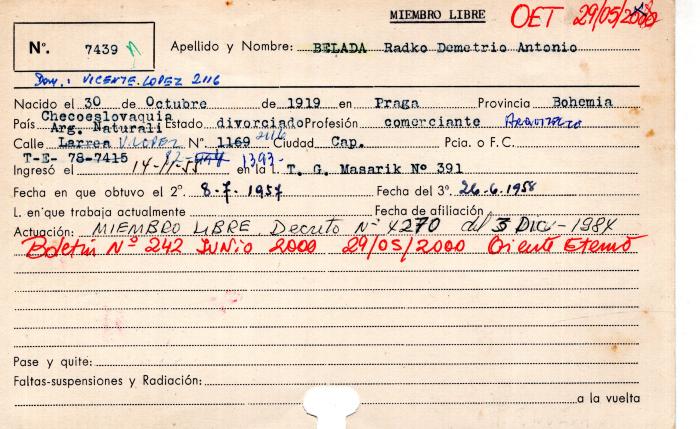 MIEMBRO LIBRE OET 29/05/2000
N°. 7439 Apellido y Nombre: BELADA Radko Demetrio Antonio
Dom.: VICENTE LOPEZ 2116
Nacido el 30 de Octubre de 1919 en Praga Provincia Bohemia
Checoeslovaquia
País Arg. Naturali Estado divorciado Profesión comerciante Arquitecto
Calle Larrea V. LOPEZ N°. 1169 2116 Ciudad Cap. Pcia. o F.C.
T-E- 78-7415 1393
Ingresó el 14-11-55 en la l. T. G. Masarik Nº 391
Fecha en que obtuvo el 2°. 8-7-1957 Fecha del 3°. 26-6-1958
L. en que trabaja actualmente Fecha de afiliación
Actuación: MIEMBRO LIBRE Decreto Nº 4270 del 3 DIC-1984
Boletin Nº 242 JUNIO 2000 29/05/2000 Oriente Eterno
Pase y quite:
Faltas-suspensiones y Radiación:
a la vuelta